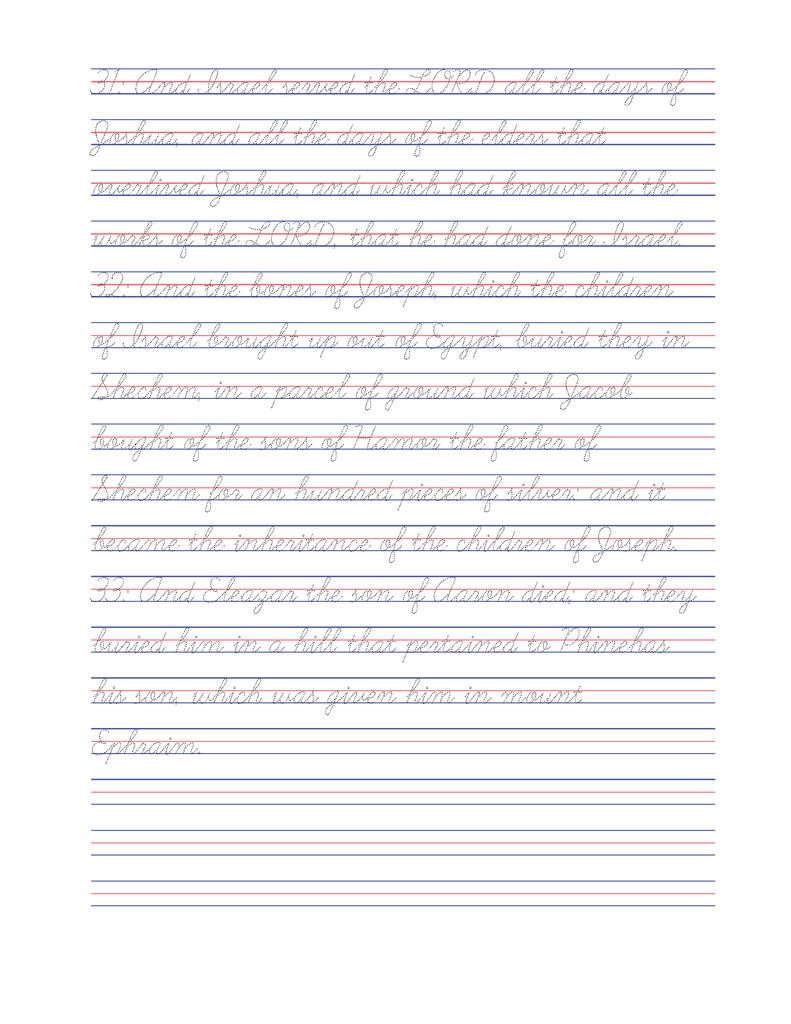 31: And Israel served the LORD all the days of
Joshua, and all the days of the elders that
overlived Joshua, and which had known all the
works of the LORD, that he had done for Israel.
32: And the bones of Joseph, which the children
of Israel brought up out of Egypt, buried they in
Shechem, in a parcel of ground which Jacob
bought of the sons of Hamor the father of
Shechem for an hundred pieces of silver: and it
became the inheritance of the children of Joseph.
33: And Eleazar the son of Aaron died; and they
buried him in a hill that pertained to Phinehas
his son, which was given him in mount
Ephraim.